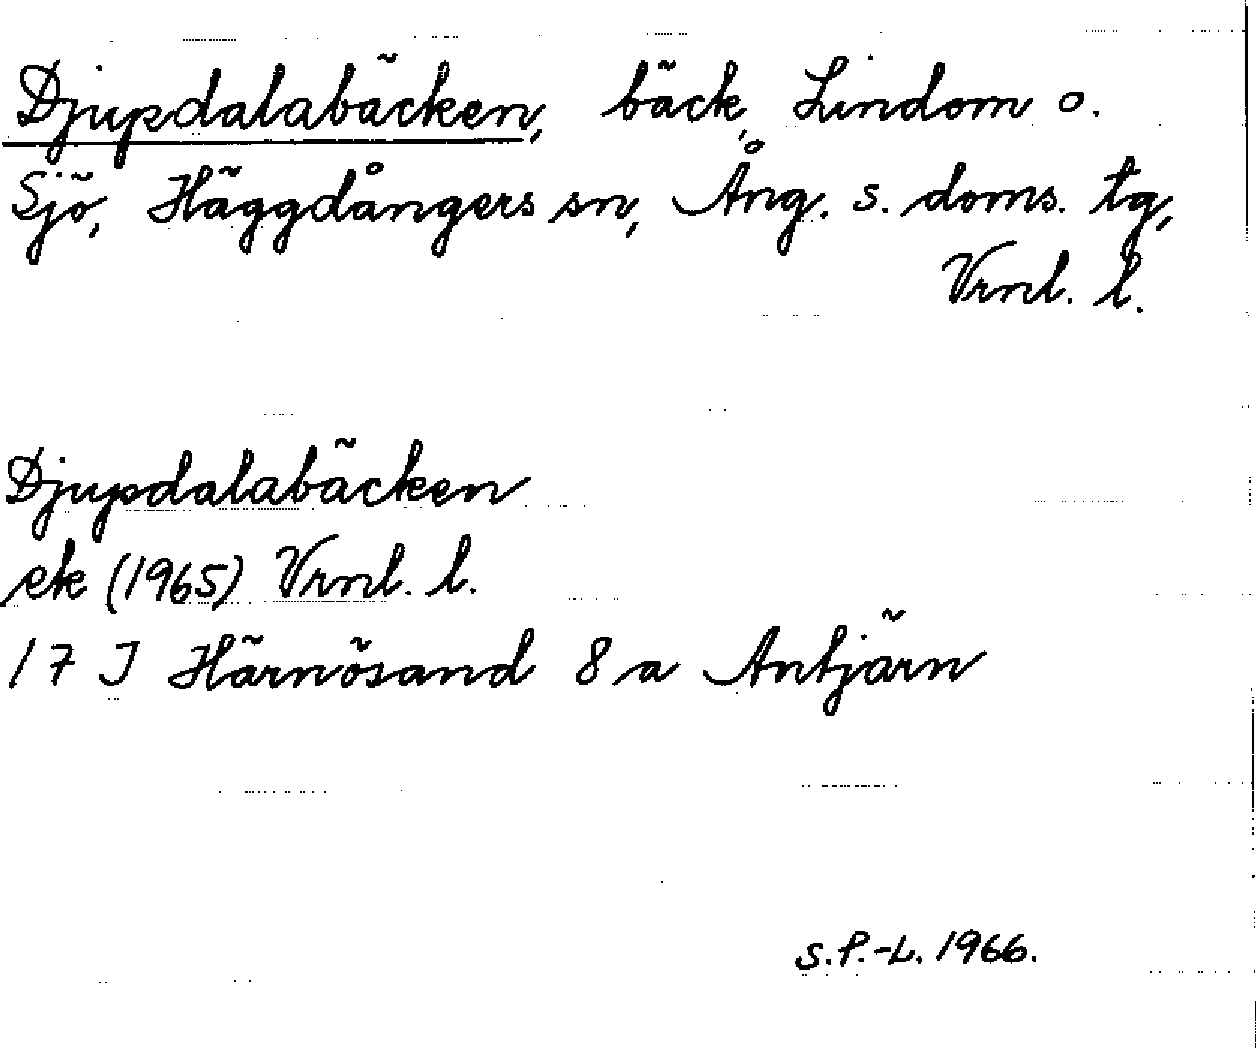 Djupdalabäcken, bäck, Lindom o.
Sjö, Häggdångers sn, Ång. s. doms. tg,
Vrnl. l.
Djupdalabäcken
ek (1965) Vrnl. l.
17 J Härnösand 8 a Antjärn
S.P.-L. 1966.